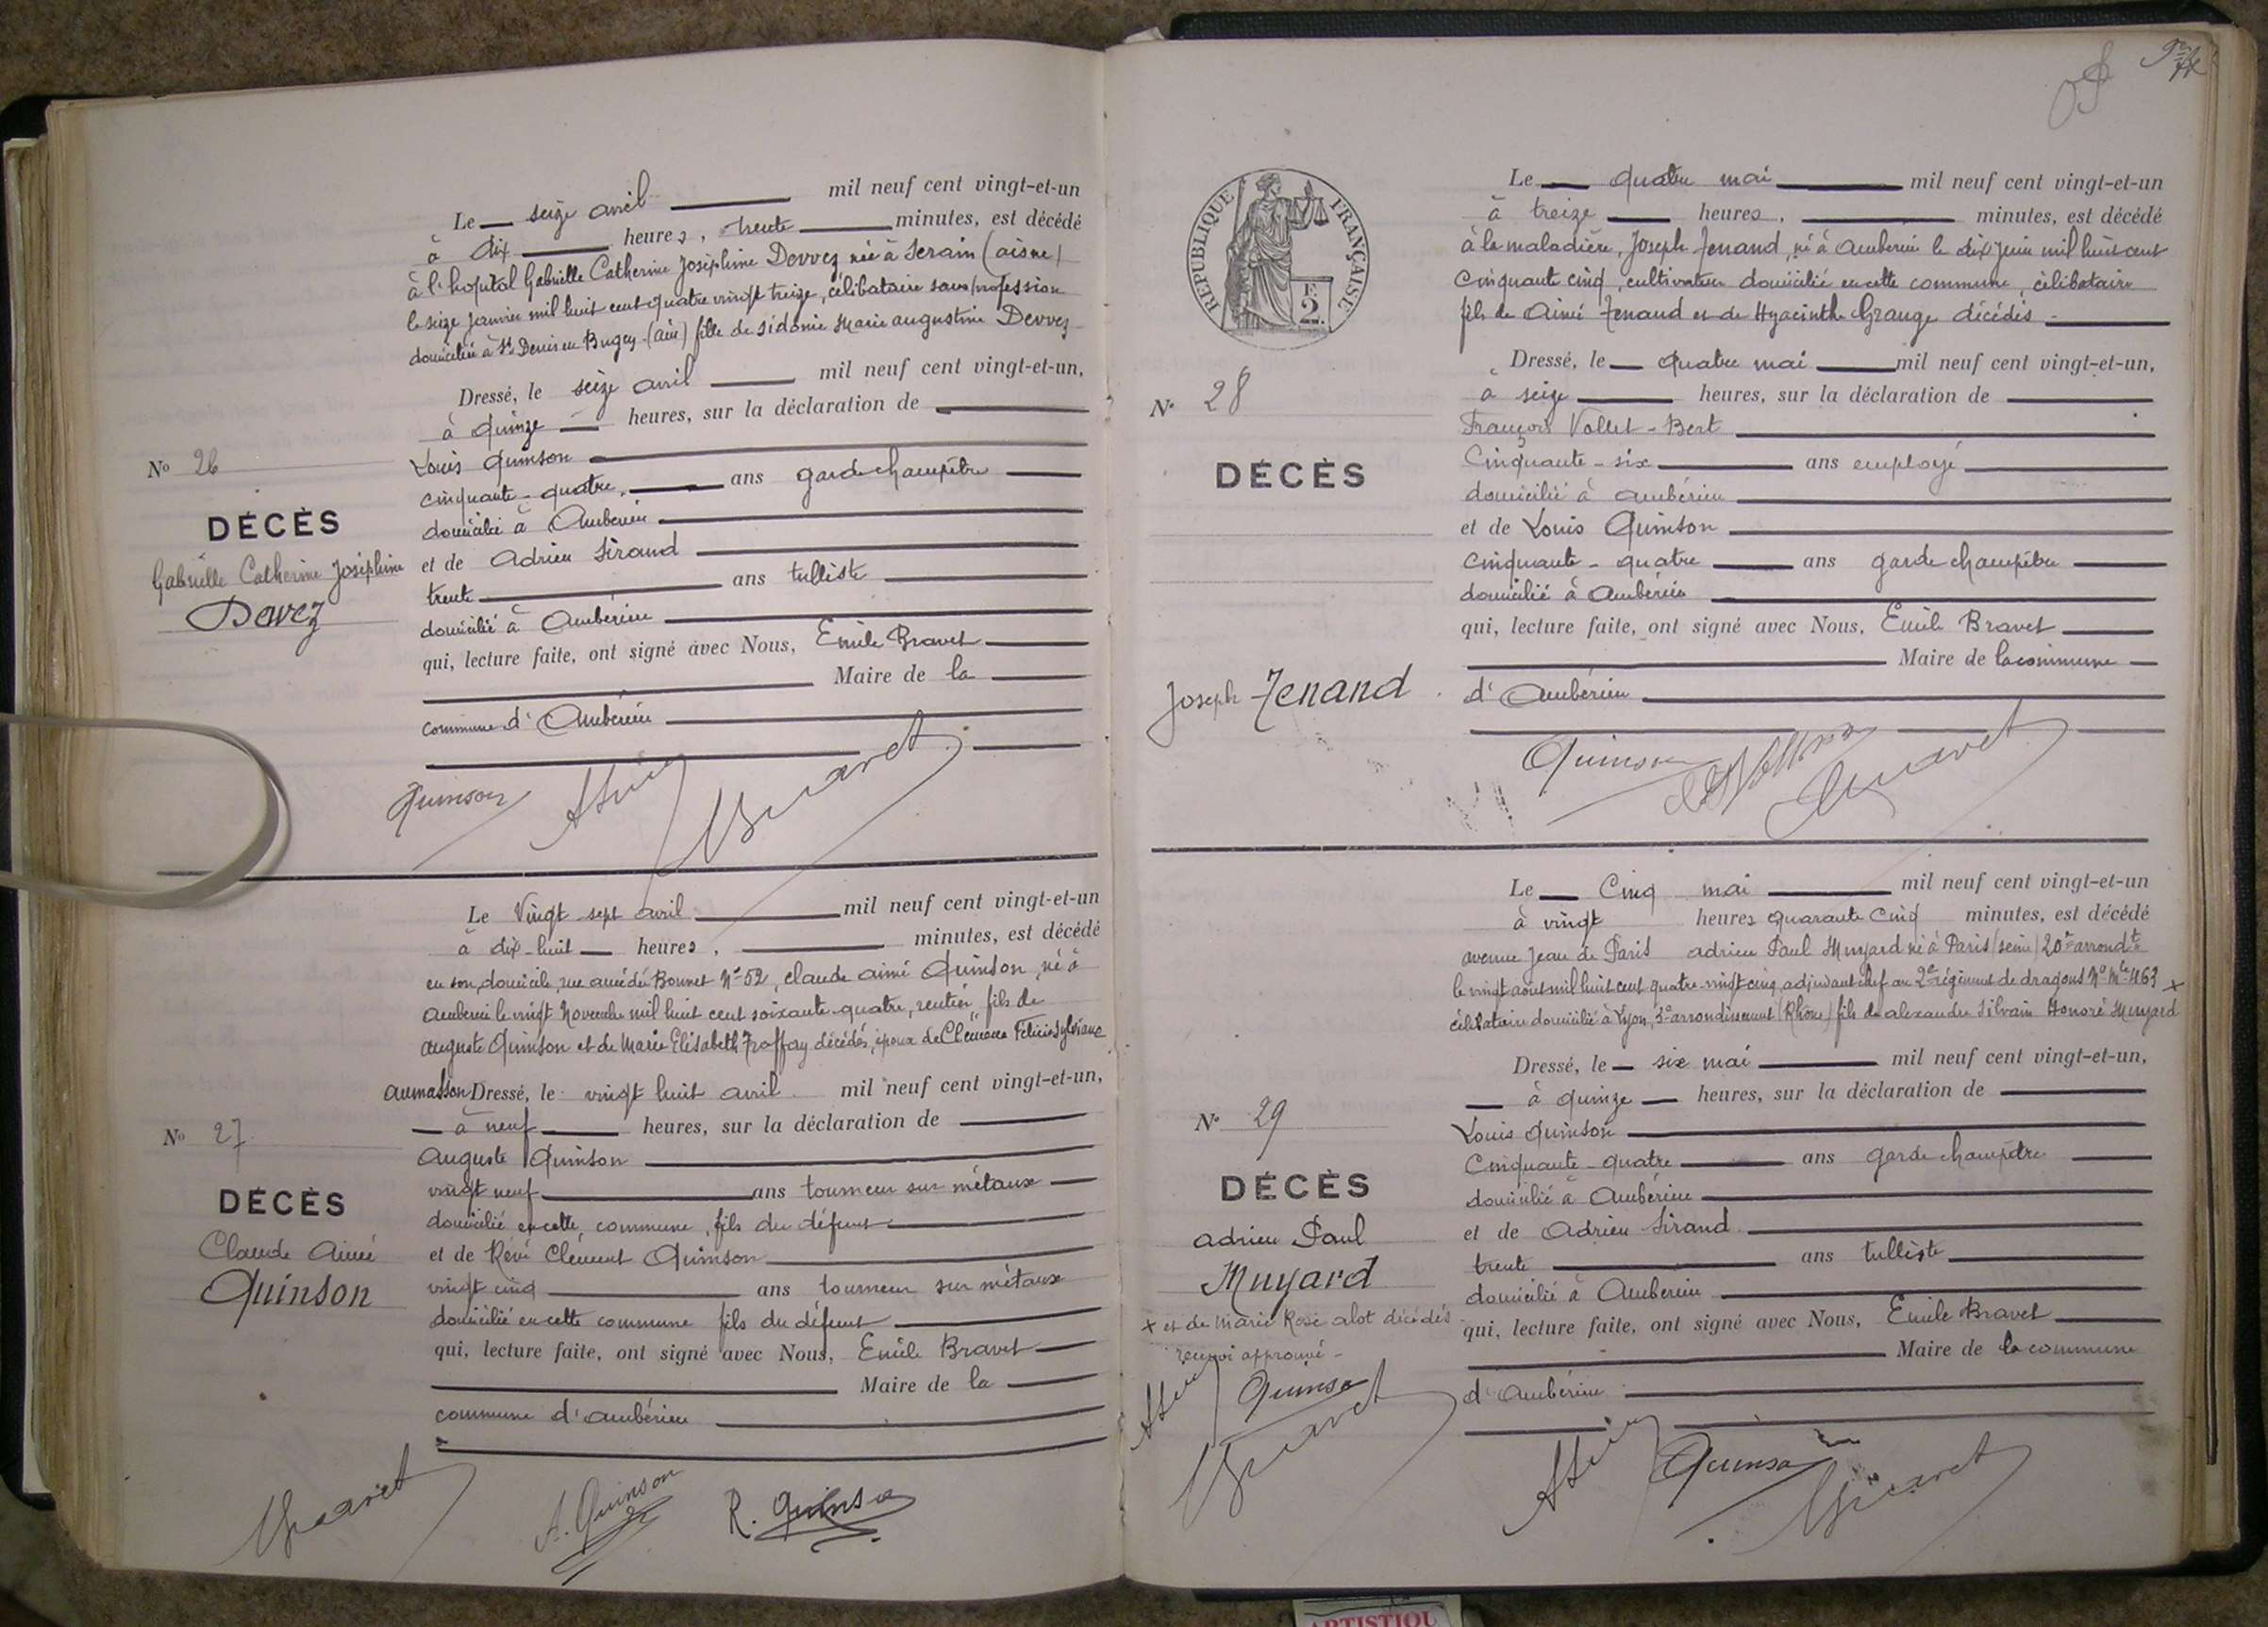 Le seize avril mil neuf cent vingt-et-un
à dix heures, trente minutes, est décédé
à l'hopital Gabrielle Catherine Joséphine Devvez née à Serain (aisne)
le seize janvier mil huit cent quatre vingt treize, célibataire sans profession
domiciliée à St Denis en Bugey (ain) fille de sidonie Marie augustine Devvez
Dressé, le seize avril mil neuf cent vingt-et-un,
à quinze heures, sur la déclaration de
Louis Quinson
cinquante-quatre, ans garde champêtre
domicilié à Ambérieu
et de Adrien Sirand
trente ans tulliste
domicilié à Ambérieu
qui, lecture faite, ont signé avec Nous, Emile Bravet
Maire de la
commune d'Ambérieu
No 26
DÉCÈS
Gabrielle Catherine Joséphine
Devvez
Quinson
Bravet
Le Vingt sept avril mil neuf cent vingt-et-un
à dix-huit heures, minutes, est décédé
en son domicile, rue amédée Bonnet No 52, claude aimé Quinson, né à
Ambérieu le vingt Novembre mil huit cent soixante-quatre, rentier, fils de
auguste Quinson et de Marie Elisabeth décédés, époux de Clémence Félicie Sylviane
aumasson Dressé, le vingt huit avril mil neuf cent vingt-et-un,
à neuf heures, sur la déclaration de
auguste Quinson
vingt neuf ans tourneur sur métaux
domicilié en cette commune, fils du défunt
et de Réné Clément Quinson
vingt cinq ans tourneur sur métaux
domicilié en cette commune fils du défunt
qui, lecture faite, ont signé avec Nous, Emile Bravet
Maire de la
commune d'ambérieu
No 27
DÉCÈS
Claude Aimé
Quinson
Bravet
A. Quinson
R. Quinson
RÉPUBLIQUE FRANÇAISE
2 F.
Le quatre mai mil neuf cent vingt-et-un
à treize heures, minutes, est décédé
à la maladière, Joseph Tenand, né à Ambérieu le dix juin mil huit cent
cinquante cinq, cultivateur domicilié en cette commune, célibataire
fils de Aimé Tenand et de Hyacinthe Grange décédés
Dressé, le quatre mai mil neuf cent vingt-et-un,
à seize heures, sur la déclaration de
François Vollet-Bert
Cinquante-six ans employé
domicilié à ambérieu
et de Louis Quinson
cinquante-quatre ans garde champêtre
domicilié à Ambérieu
qui, lecture faite, ont signé avec Nous, Emile Bravet
Maire de la commune
d'Ambérieu
No 28
DÉCÈS
Joseph Tenand
Quinson
Bravet
Le Cinq mai mil neuf cent vingt-et-un
à vingt heures quarante cinq minutes, est décédé
avenue Jean de Paris adrien Paul Muyard né à Paris (seine) 20e arrondt
le vingt aout mil huit cent quatre-vingt cinq, adjudant chef au 2e régiment de dragons No Mle 1163 x
célibataire domicilié à Lyon, 3e arrondissement (Rhône) fils de alexandre Silvain Honoré Muyard
Dressé, le six mai mil neuf cent vingt-et-un,
à quinze heures, sur la déclaration de
Louis Quinson
Cinquante-quatre ans garde champêtre
domicilié à Ambérieu
et de Adrien Sirand
trente ans tulliste
domicilié à Ambérieu
qui, lecture faite, ont signé avec Nous, Emile Bravet
Maire de la commune
d'Ambérieu
No 29
DÉCÈS
adrien Paul
Muyard
x et de Marie Rose alot décédés
renvoi approuvé
Quinson
Bravet
Quinson
Bravet
ARTISTIQU